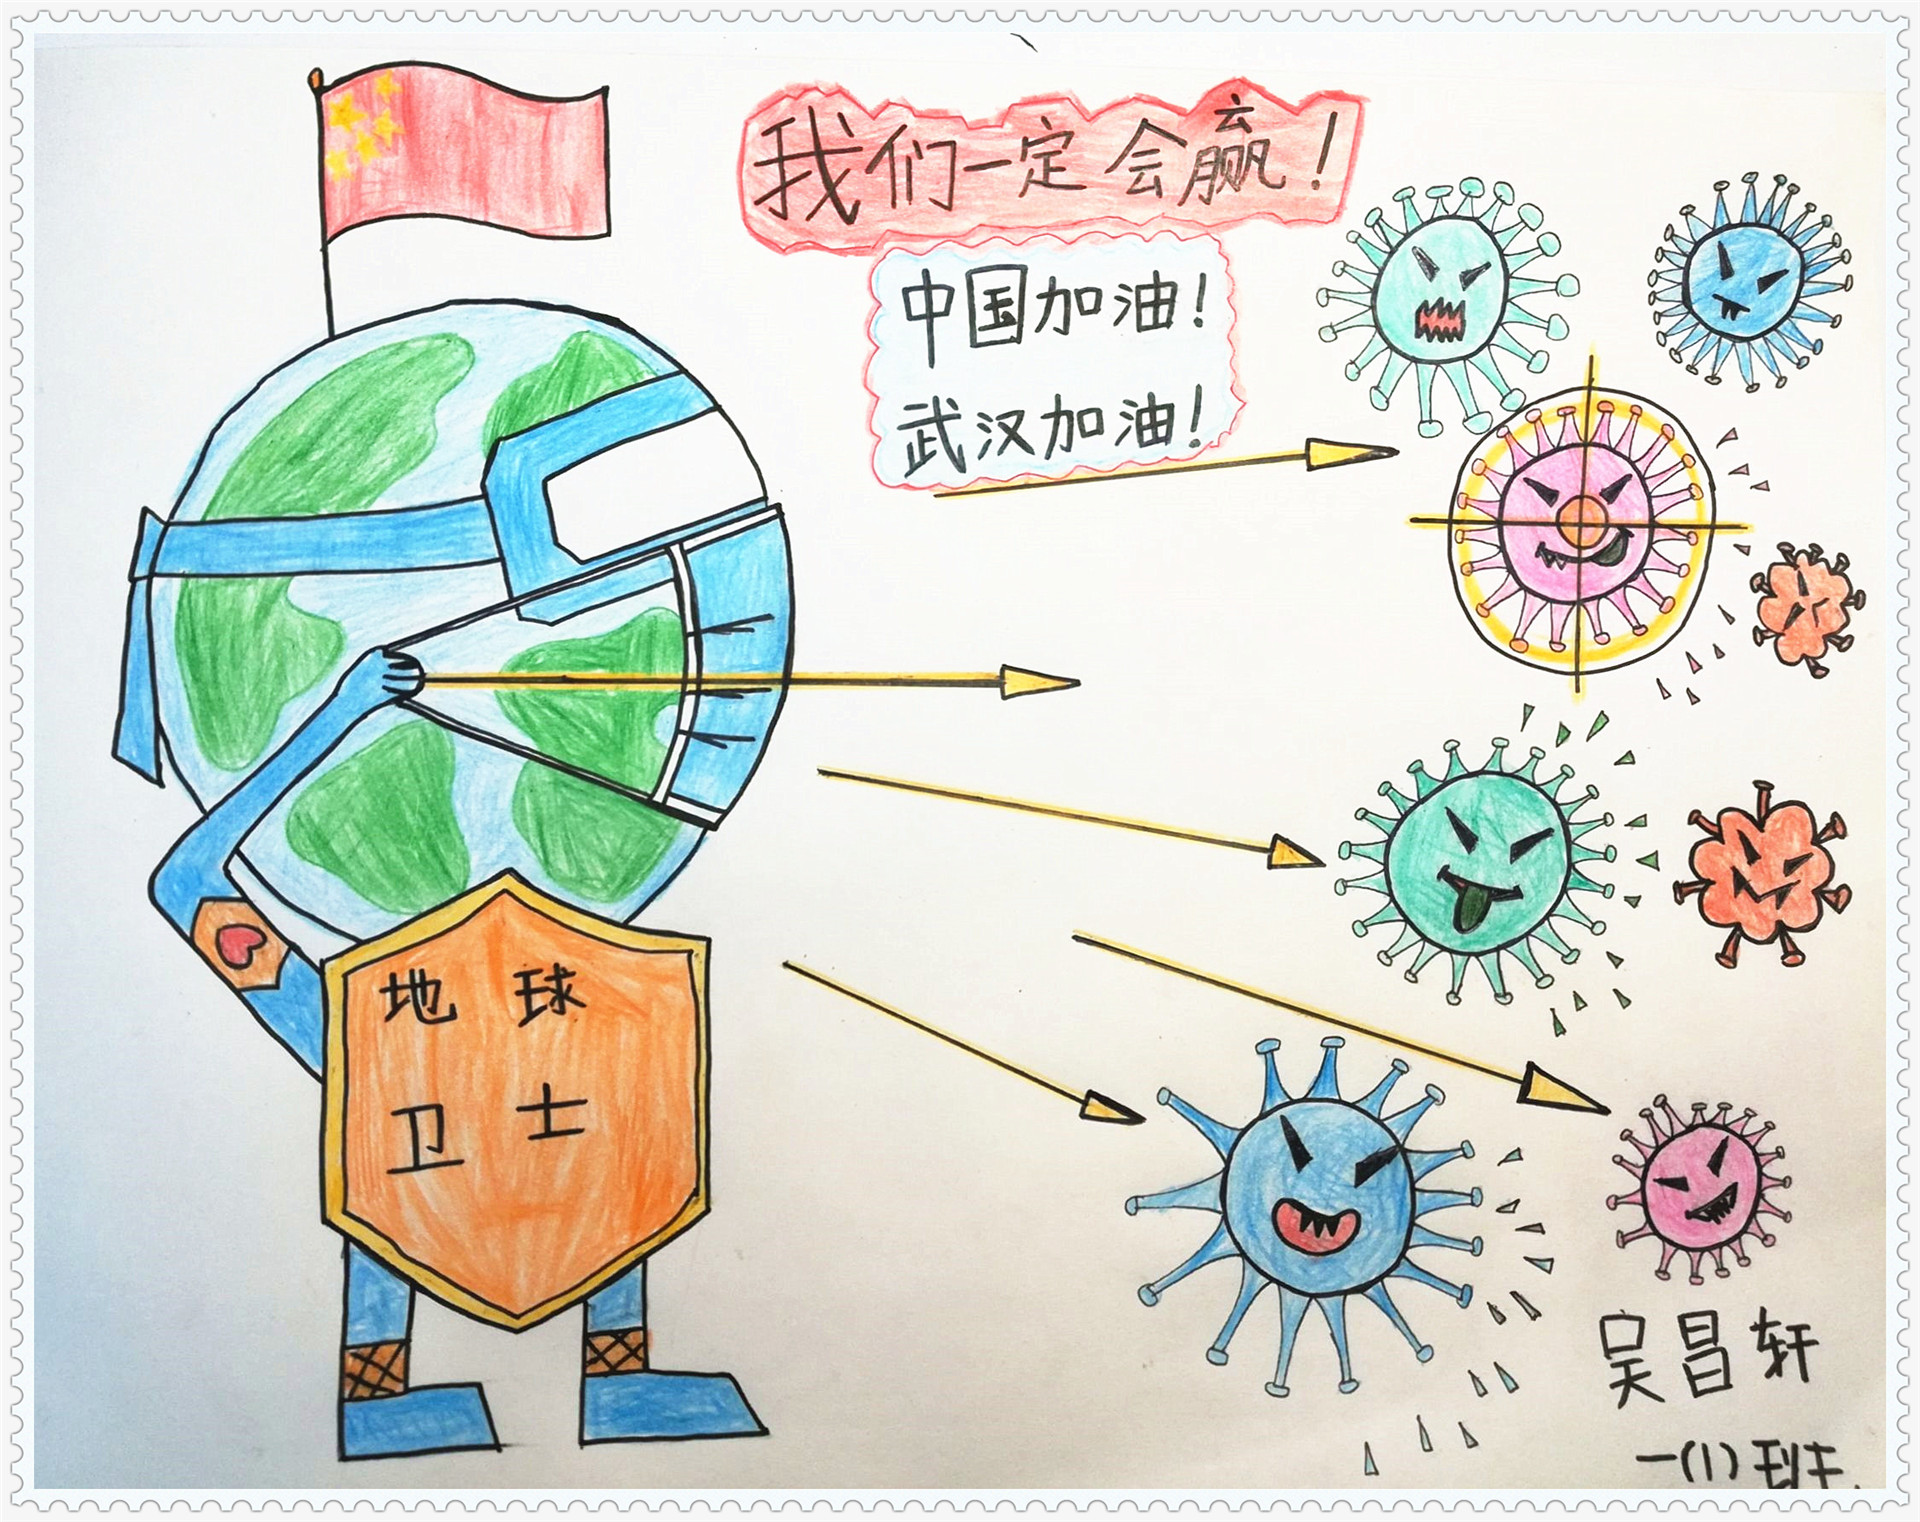 我们一定会赢！
中国加油！
武汉加油！
地球
卫士
吴昌轩
一(1)班